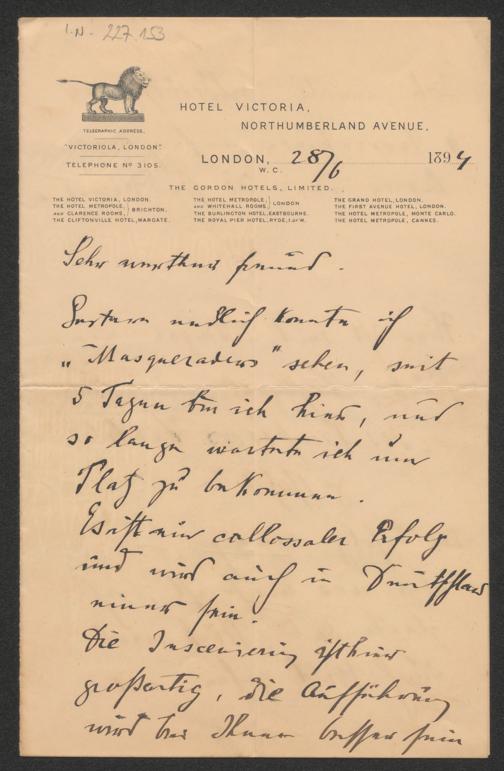 I.N. 227.153
TELEGRAPHIC ADDRESS,
"VICTORIOLA, LONDON."
TELEPHONE Nº 3105.
HOTEL VICTORIA,
NORTHUMBERLAND AVENUE,
LONDON, 28/6 1894
W.C.
THE GORDON HOTELS, LIMITED.
THE HOTEL VICTORIA, LONDON.
THE HOTEL METROPOLE, AND CLARENCE ROOMS, } BRIGHTON.
THE CLIFTONVILLE HOTEL, MARGATE.
THE HOTEL METROPOLE, AND WHITEHALL ROOMS, } LONDON
THE BURLINGTON HOTEL, EASTBOURNE.
THE ROYAL PIER HOTEL, RYDE, I. OF W.
THE GRAND HOTEL, LONDON.
THE FIRST AVENUE HOTEL, LONDON.
THE HOTEL METROPOLE, MONTE CARLO.
THE HOTEL METROPOLE, CANNES.
Sehr werther Freund.
Gestern endlich konnte ich
„Masqueraders" sehen, seit
5 Tagen bin ich hier, und
so lange wartete ich um
Platz zu bekommen.
Es ist ein collossaler Erfolg
und wird auch in Deutschland
einer sein.
Die Inscenierung ist hier
großartig, die Aufführung
wird bei Ihnen besser sein